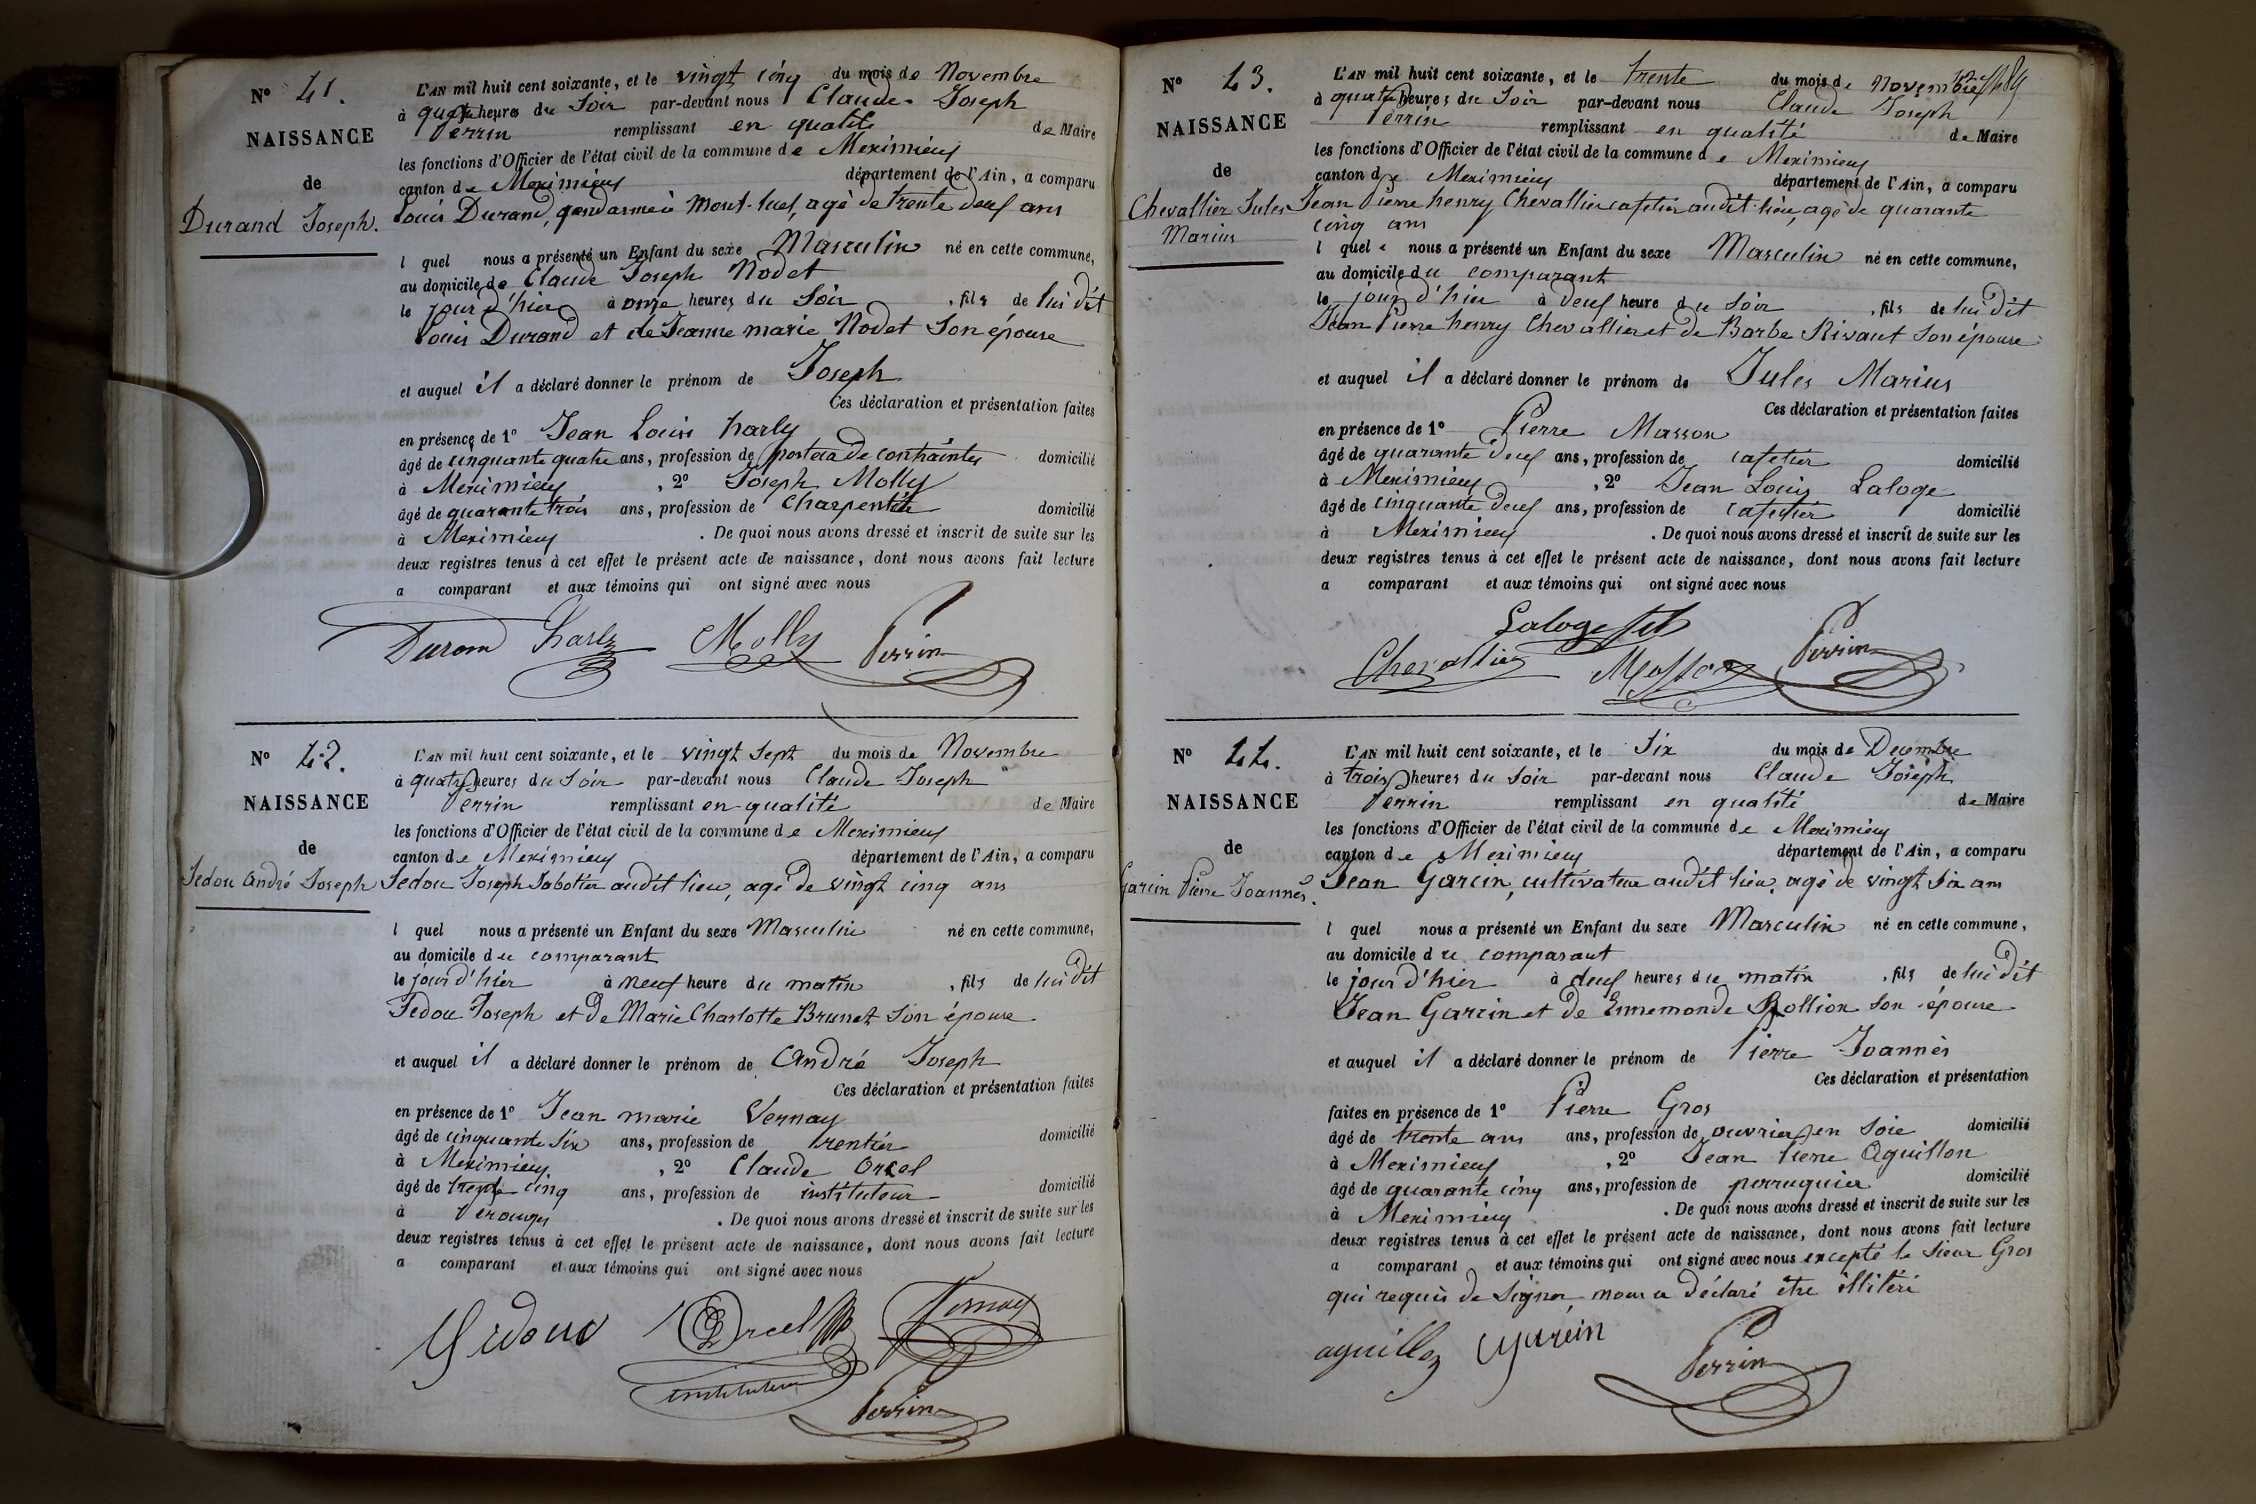 N° 41.
NAISSANCE
de
Durand Joseph.
L'AN mil huit cent soixante, et le vingt cinq du mois de Novembre
à quatre heures du Soir par-devant nous Claude Joseph
Perrin remplissant en qualité de Maire
les fonctions d'Officier de l'état civil de la commune de Meximieux
canton de Meximieux département de l'Ain, a comparu
Louis Durand, gendarme à Mont-luel, agé de trente deux ans
l quel nous a présenté un Enfant du sexe Masculin né en cette commune,
au domicile de Claude Joseph Nodet
le jour d'hier à onze heures du Soir, fils de lui dit
Louis Durand et de Jeanne marie Nodet Son épouse
et auquel il a déclaré donner le prénom de Joseph
Ces déclaration et présentation faites
en présence de 1° Jean Louis harly
âgé de cinquante quatre ans, profession de porteur de contraintes domicilié
à Meximieux, 2° Joseph Molly
âgé de quarante trois ans, profession de Charpentier domicilié
à Meximieux. De quoi nous avons dressé et inscrit de suite sur les
deux registres tenus à cet effet le présent acte de naissance, dont nous avons fait lecture
a comparant et aux témoins qui ont signé avec nous
Durand harly Molly Perrin
N° 42.
NAISSANCE
de
Sedou André Joseph
L'AN mil huit cent soixante, et le vingt Sept du mois de Novembre
à quatre heures du Soir par-devant nous Claude Joseph
Perrin remplissant en qualité de Maire
les fonctions d'Officier de l'état civil de la commune de Meximieux
canton de Meximieux département de l'Ain, a comparu
Sedou Joseph Sabotier audit lieu, agé de vingt cinq ans
l quel nous a présenté un Enfant du sexe Masculin né en cette commune,
au domicile du comparant
le jour d'hier à neuf heure du matin, fils de lui dit
Sedou Joseph et de Marie Charlotte Brunet Son épouse
et auquel il a déclaré donner le prénom de André Joseph
Ces déclaration et présentation faites
en présence de 1° Jean marie Vernay
âgé de cinquante Six ans, profession de rentier domicilié
à Meximieux, 2° Claude Orcel
âgé de trente cinq ans, profession de instituteur domicilié
à Perouges. De quoi nous avons dressé et inscrit de suite sur les
deux registres tenus à cet effet le présent acte de naissance, dont nous avons fait lecture
a comparant et aux témoins qui ont signé avec nous
Sedou Orcel Vernay
instituteur
Perrin
N° 43.
NAISSANCE
de
Chevallier Jules
Marius
L'AN mil huit cent soixante, et le trente du mois de Novembre
à quatre heures du Soir par-devant nous Claude Joseph
Perrin remplissant en qualité de Maire
les fonctions d'Officier de l'état civil de la commune de Meximieux
canton de Meximieux département de l'Ain, a comparu
Jean Pierre henry Chevallier cafetier audit lieu, agé de quarante
cinq ans
l quel e nous a présenté un Enfant du sexe Masculin né en cette commune,
au domicile du comparant
le jour d'hier à deux heure du Soir, fils de lui dit
Jean Pierre henry Chevallier et de Barbe Rivaut Son épouse
et auquel il a déclaré donner le prénom de Jules Marius
Ces déclaration et présentation faites
en présence de 1° Pierre Masson
âgé de quarante deux ans, profession de cafetier domicilié
à Meximieux, 2° Jean Louis Laloge
âgé de cinquante deux ans, profession de cafetier domicilié
à Meximieux. De quoi nous avons dressé et inscrit de suite sur les
deux registres tenus à cet effet le présent acte de naissance, dont nous avons fait lecture
a comparant et aux témoins qui ont signé avec nous
Laloge
Chevallier Masson Perrin
N° 44.
NAISSANCE
de
Garcin Pierre Joannès.
L'AN mil huit cent soixante, et le Six du mois de Décembre
à trois heures du Soir par-devant nous Claude Joseph
Perrin remplissant en qualité de Maire
les fonctions d'Officier de l'état civil de la commune de Meximieux
canton de Meximieux département de l'Ain, a comparu
Jean Garcin, cultivateur audit lieu, agé de vingt Six ans
l quel nous a présenté un Enfant du sexe Masculin né en cette commune,
au domicile du comparant
le jour d'hier à deux heures du matin, fils de lui dit
Jean Garcin et de Ennemonde Rollion son épouse
et auquel il a déclaré donner le prénom de Pierre Joannès
Ces déclaration et présentation
faites en présence de 1° Pierre Gros
âgé de trente ans ans, profession de ouvrier en Soie domicilié
à Meximieux, 2° Jean Pierre Aguillon
âgé de quarante cinq ans, profession de perruquier domicilié
à Meximieux. De quoi nous avons dressé et inscrit de suite sur les
deux registres tenus à cet effet le présent acte de naissance, dont nous avons fait lecture
a comparant et aux témoins qui ont signé avec nous excepté le Sieur Gros
qui requis de Signer, nous a déclaré être illitéré
aguillon garcin
Perrin